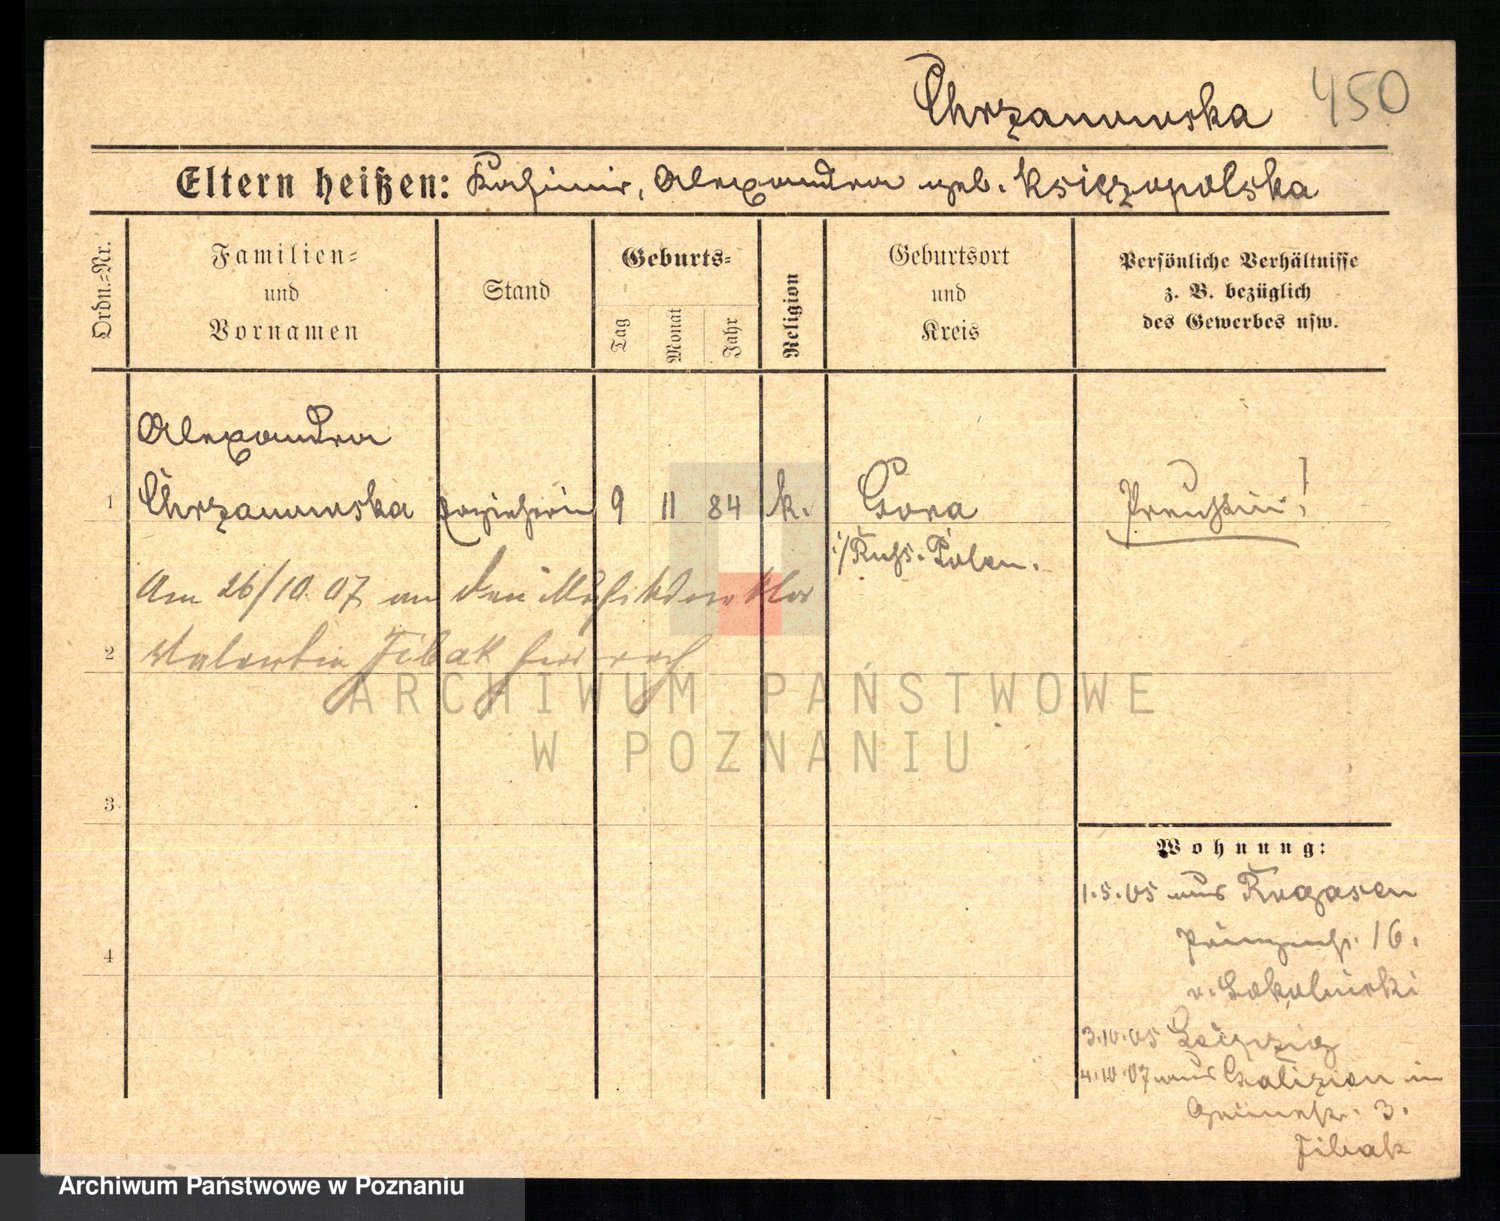 Chrzanowska 450
Eltern heißen: Kasimir, Alexandra geb. Księzopolska
Ordn.-Nr.
Familien-
und
Vornamen
Stand
Geburts-
Tag
Monat
Jahr
Religion
Geburtsort
und
Kreis
Persönliche Verhältnisse
z. B. bezüglich
des Gewerbes usw.
Alexandra
1 Chrzanowska Erzieherin 9 11 84 k. Gora Preußin!
i/Russ. Polen.
Am 26/10. 07 an den Musikdirektor
2 Valentin Jibak
ARCHIWUM PAŃSTWOWE
W POZNANIU
3
Wohnung:
1.5.05 aus Rogasen
Prinzenstr. 16.
4
v. Sokolnicki
3.10.05 Leipzig
4.10.07 aus Galizien in
Grünestr. 3.
Jibak
Archiwum Państwowe w Poznaniu